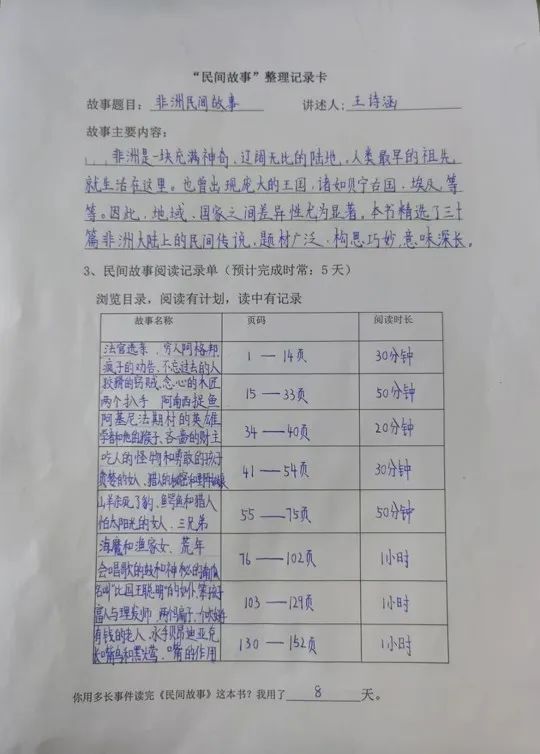 “民间故事”整理记录卡
故事题目：非洲民间故事 讲述人：王诗涵
故事主要内容：
非洲是一块充满神奇、辽阔无比的陆地，人类最早的祖先
就生活在这里。也曾出现庞大的王国，诸如贝宁古国、埃及等
等。因此，地域、国家之间差异性尤为显著。本书精选了三十
篇非洲大陆上的民间传说，题材广泛、构思巧妙，意味深长。
3、民间故事阅读记录单（预计完成时常：5 天）
浏览目录，阅读有计划，读中有记录
故事名称 页码 阅读时长
法官选亲、穷人阿格邦
疯子的劝告、不忘过去的人
1 — 14页 30分钟
狡猾的窃贼、贪心的木匠
两个扒手 阿南西捉鱼
15 — 33页 50分钟
阿基尼法期村的英雄
学者和他的猴子、吝啬的财主
34 — 40页 20分钟
吃人的怪物和勇敢的孩子
的女人、猎人的秘密和
41 — 54页 30分钟
山羊杀死了豹、鳄鱼和猎人
怕太阳光的女人、三兄弟
55 — 75页 50分钟
海魔和渔家女、荒年
会唱歌的鼓和神秘的南瓜
76 — 102页 1小时
名叫“比国王聪明”的小伙、笨孩子
富人与理发师、两个骗子、
103 — 129页 1小时
有钱的老人、水手贝昂迪亚克
130 — 152页 1小时
你用多长事件读完《民间故事》这本书？我用了 8 天。